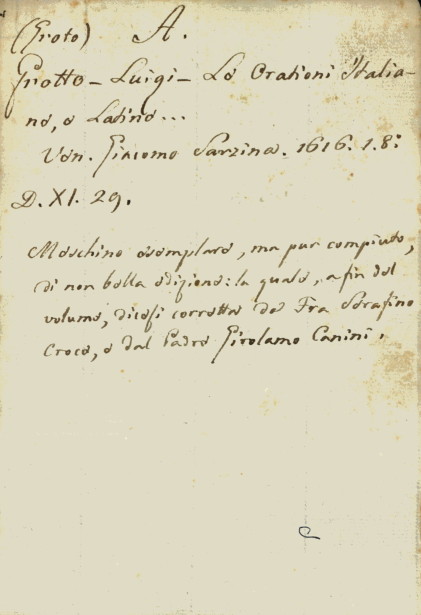 (Groto) A.
Grotto - Luigi - Le Orationi Italia-
ne, e Latine...
Ven. Giacomo Sarzina. 1616. 1.8:
D. XI. 29.
Meschino esemplare, ma pur compiuto,
di non bella edizione: la quale, a fin del
volume, dicesi corretta da Fra Serafino
Croce, e dal Padre Girolamo Canini.